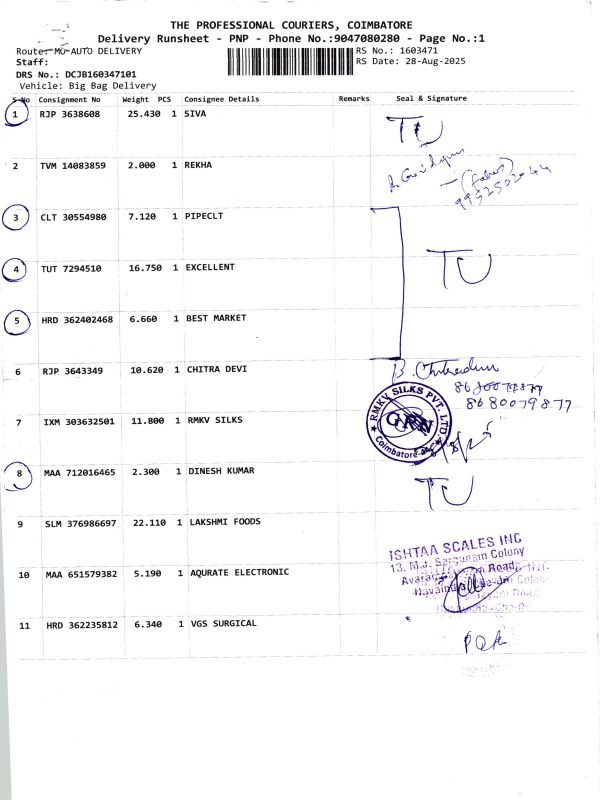 THE PROFESSIONAL COURIERS, COIMBATORE
Delivery Runsheet - PNP - Phone No.:9047080280 - Page No.:1
Route: MO-AUTO DELIVERY
RS No.: 1603471
Staff:
RS Date: 28-Aug-2025
DRS No.: DCJB160347101
Vehicle: Big Bag Delivery
S-No Consignment No Weight PCS Consignee Details Remarks Seal & Signature
1 RJP 3638608 25.430 1 SIVA
TU
2 TVM 14083859 2.000 1 REKHA
3 CLT 30554980 7.120 1 PIPECLT
4 TUT 7294510 16.750 1 EXCELLENT
TU
5 HRD 362402468 6.660 1 BEST MARKET
6 RJP 3643349 10.620 1 CHITRA DEVI
8680079877
7 IXM 303632501 11.800 1 RMKV SILKS
RMKV SILKS PVT. LTD
Coimbatore
8 MAA 712016465 2.300 1 DINESH KUMAR
TU
9 SLM 376986697 22.110 1 LAKSHMI FOODS
ISHTAA SCALES INC
13, M.J. Colony
Road
10 MAA 651579382 5.190 1 AQURATE ELECTRONIC
11 HRD 362235812 6.340 1 VGS SURGICAL